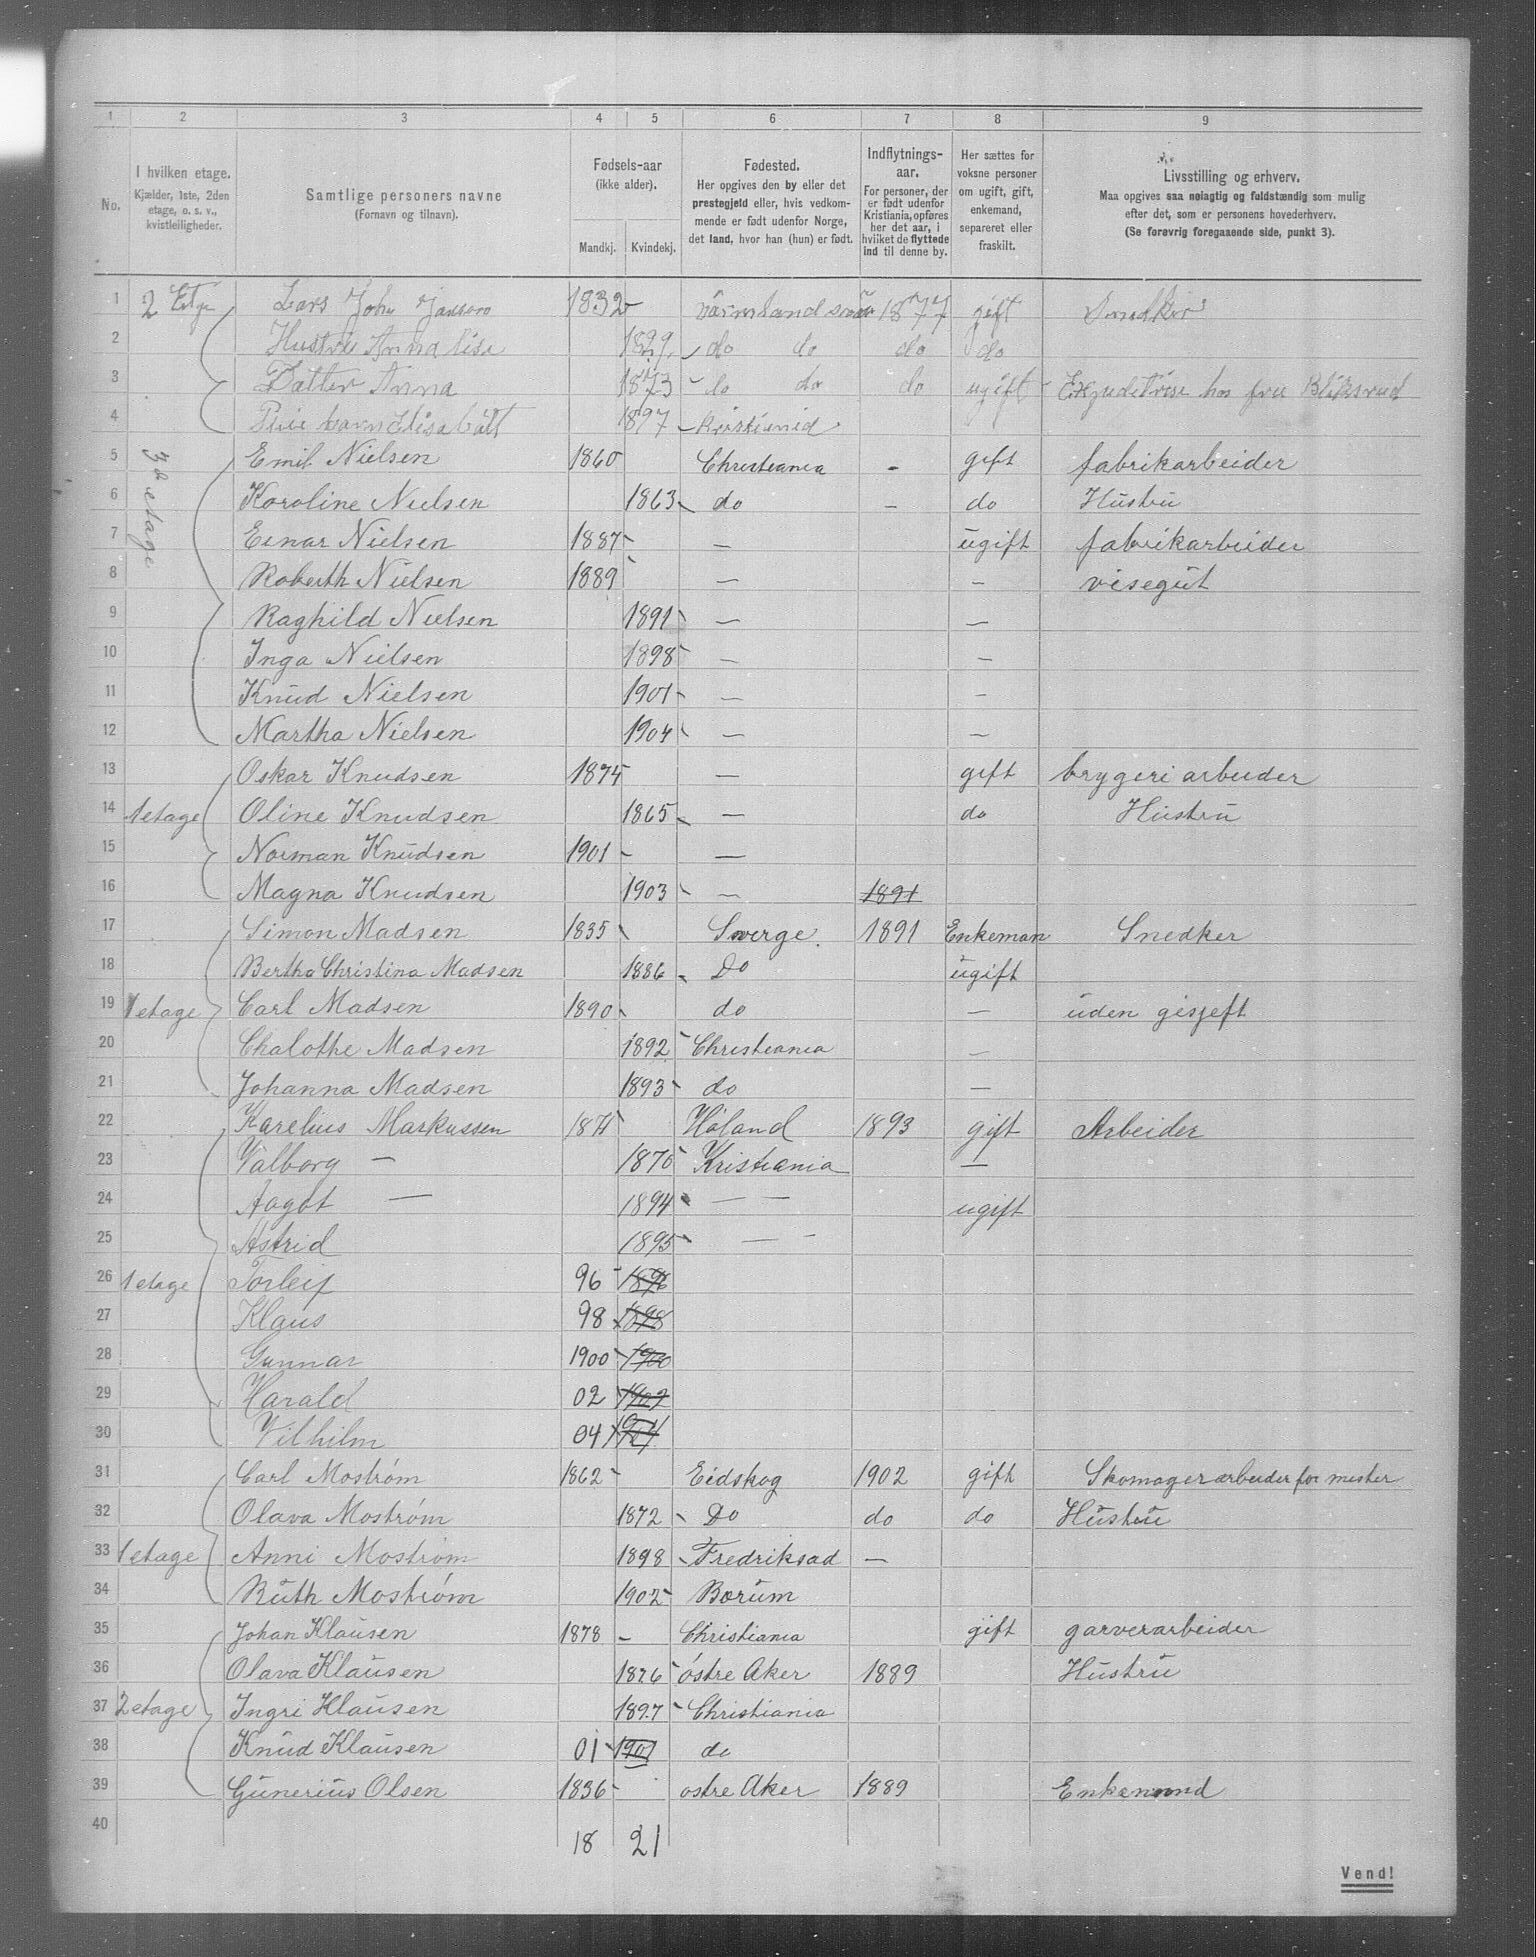 1 2 3 4 5 6 7 8 9
No.
I hvilken etage.
Kjælder, 1ste, 2den
etage, o. s. v.,
kvistleiligheder.
Samtlige personers navne
(Fornavn og tilnavn).
Fødsels-aar
(ikke alder).
Mandkj. Kvindekj.
Fødested.
Her opgives den by eller det
prestegjeld eller, hvis vedkom-
mende er født udenfor Norge,
det land, hvor han (hun) er født.
Indflytnings-
aar.
For personer, der
er født udenfor
Kristiania, opføres
her det aar, i
hvilket de flyttede
ind til denne by.
Her sættes for
voksne personer
om ugift, gift,
enkemand,
separeret eller
fraskilt.
Livsstilling og erhverv.
Maa opgives saa nøiagtig og fuldstændig som mulig
efter det, som er personens hovederhverv.
(Se forøvrig foregaaende side, punkt 3).
1 2 Etge Lars John 1832 1877 gift
2 Hustru Anna Lise 1829 do do do do
3 Datter Anna 1873 do do do ugift hos fru
4 1897
5 3de etage Emil Nielsen 1860 Christiania - gift fabrikarbeider
6 Karoline Nielsen 1863 do - do Hustru
7 Einar Nielsen 1887 — ugift fabrikarbeider
8 Roberth Nielsen 1889 — — visegut
9 Raghild Nielsen 1891 — —
10 Inga Nielsen 1898 — —
11 Knud Nielsen 1901 — —
12 Martha Nielsen 1904 — —
13 Oskar Knudsen 1875 — gift brygeri arbeider
14 1 etage Oline Knudsen 1865 — do Hustru
15 Norman Knudsen 1901 —
16 Magna Knudsen 1903 — 1891
17 Simon Madsen 1835 Sverge 1891 Enkeman Snedker
18 Bertha Christina Madsen 1886 Do ugift
19 1 etage Carl Madsen 1890 do — uden gisjeft
20 Chalothe Madsen 1892 Christiania —
21 Johanna Madsen 1893 do —
22 Karelius Markussen 1871 Høland 1893 gift Arbeider
23 Valborg — 1876 Kristiania —
24 Aagot — 1894 — — ugift
25 Astrid 1895 — -
26 1 etage Torleif 96 1896
27 Klaus 98 1898
28 Gunnar 1900 1900
29 Harald 02 1902
30 Vilhilm 04 1904
31 Carl Mostrøm 1862 Eidskog 1902 gift Skomagerarbeider for mester
32 Olava Mostrøm 1872 Do do do Hustru
33 1 etage Anni Mostrøm 1898 Fredriksad —
34 Ruth Mostrøm 1902 Borum
35 Johan Klausen 1878 Christiania gift garverarbeider
36 Olava Klausen 1876 østre Aker 1889 Hustru
37 2 etage Ingri Klausen 1897 Christiania
38 Knud Klausen 01 1901 do
39 Gunerius Olsen 1836 ostre Aker 1889 Enkemand
40
18 21
Vend!